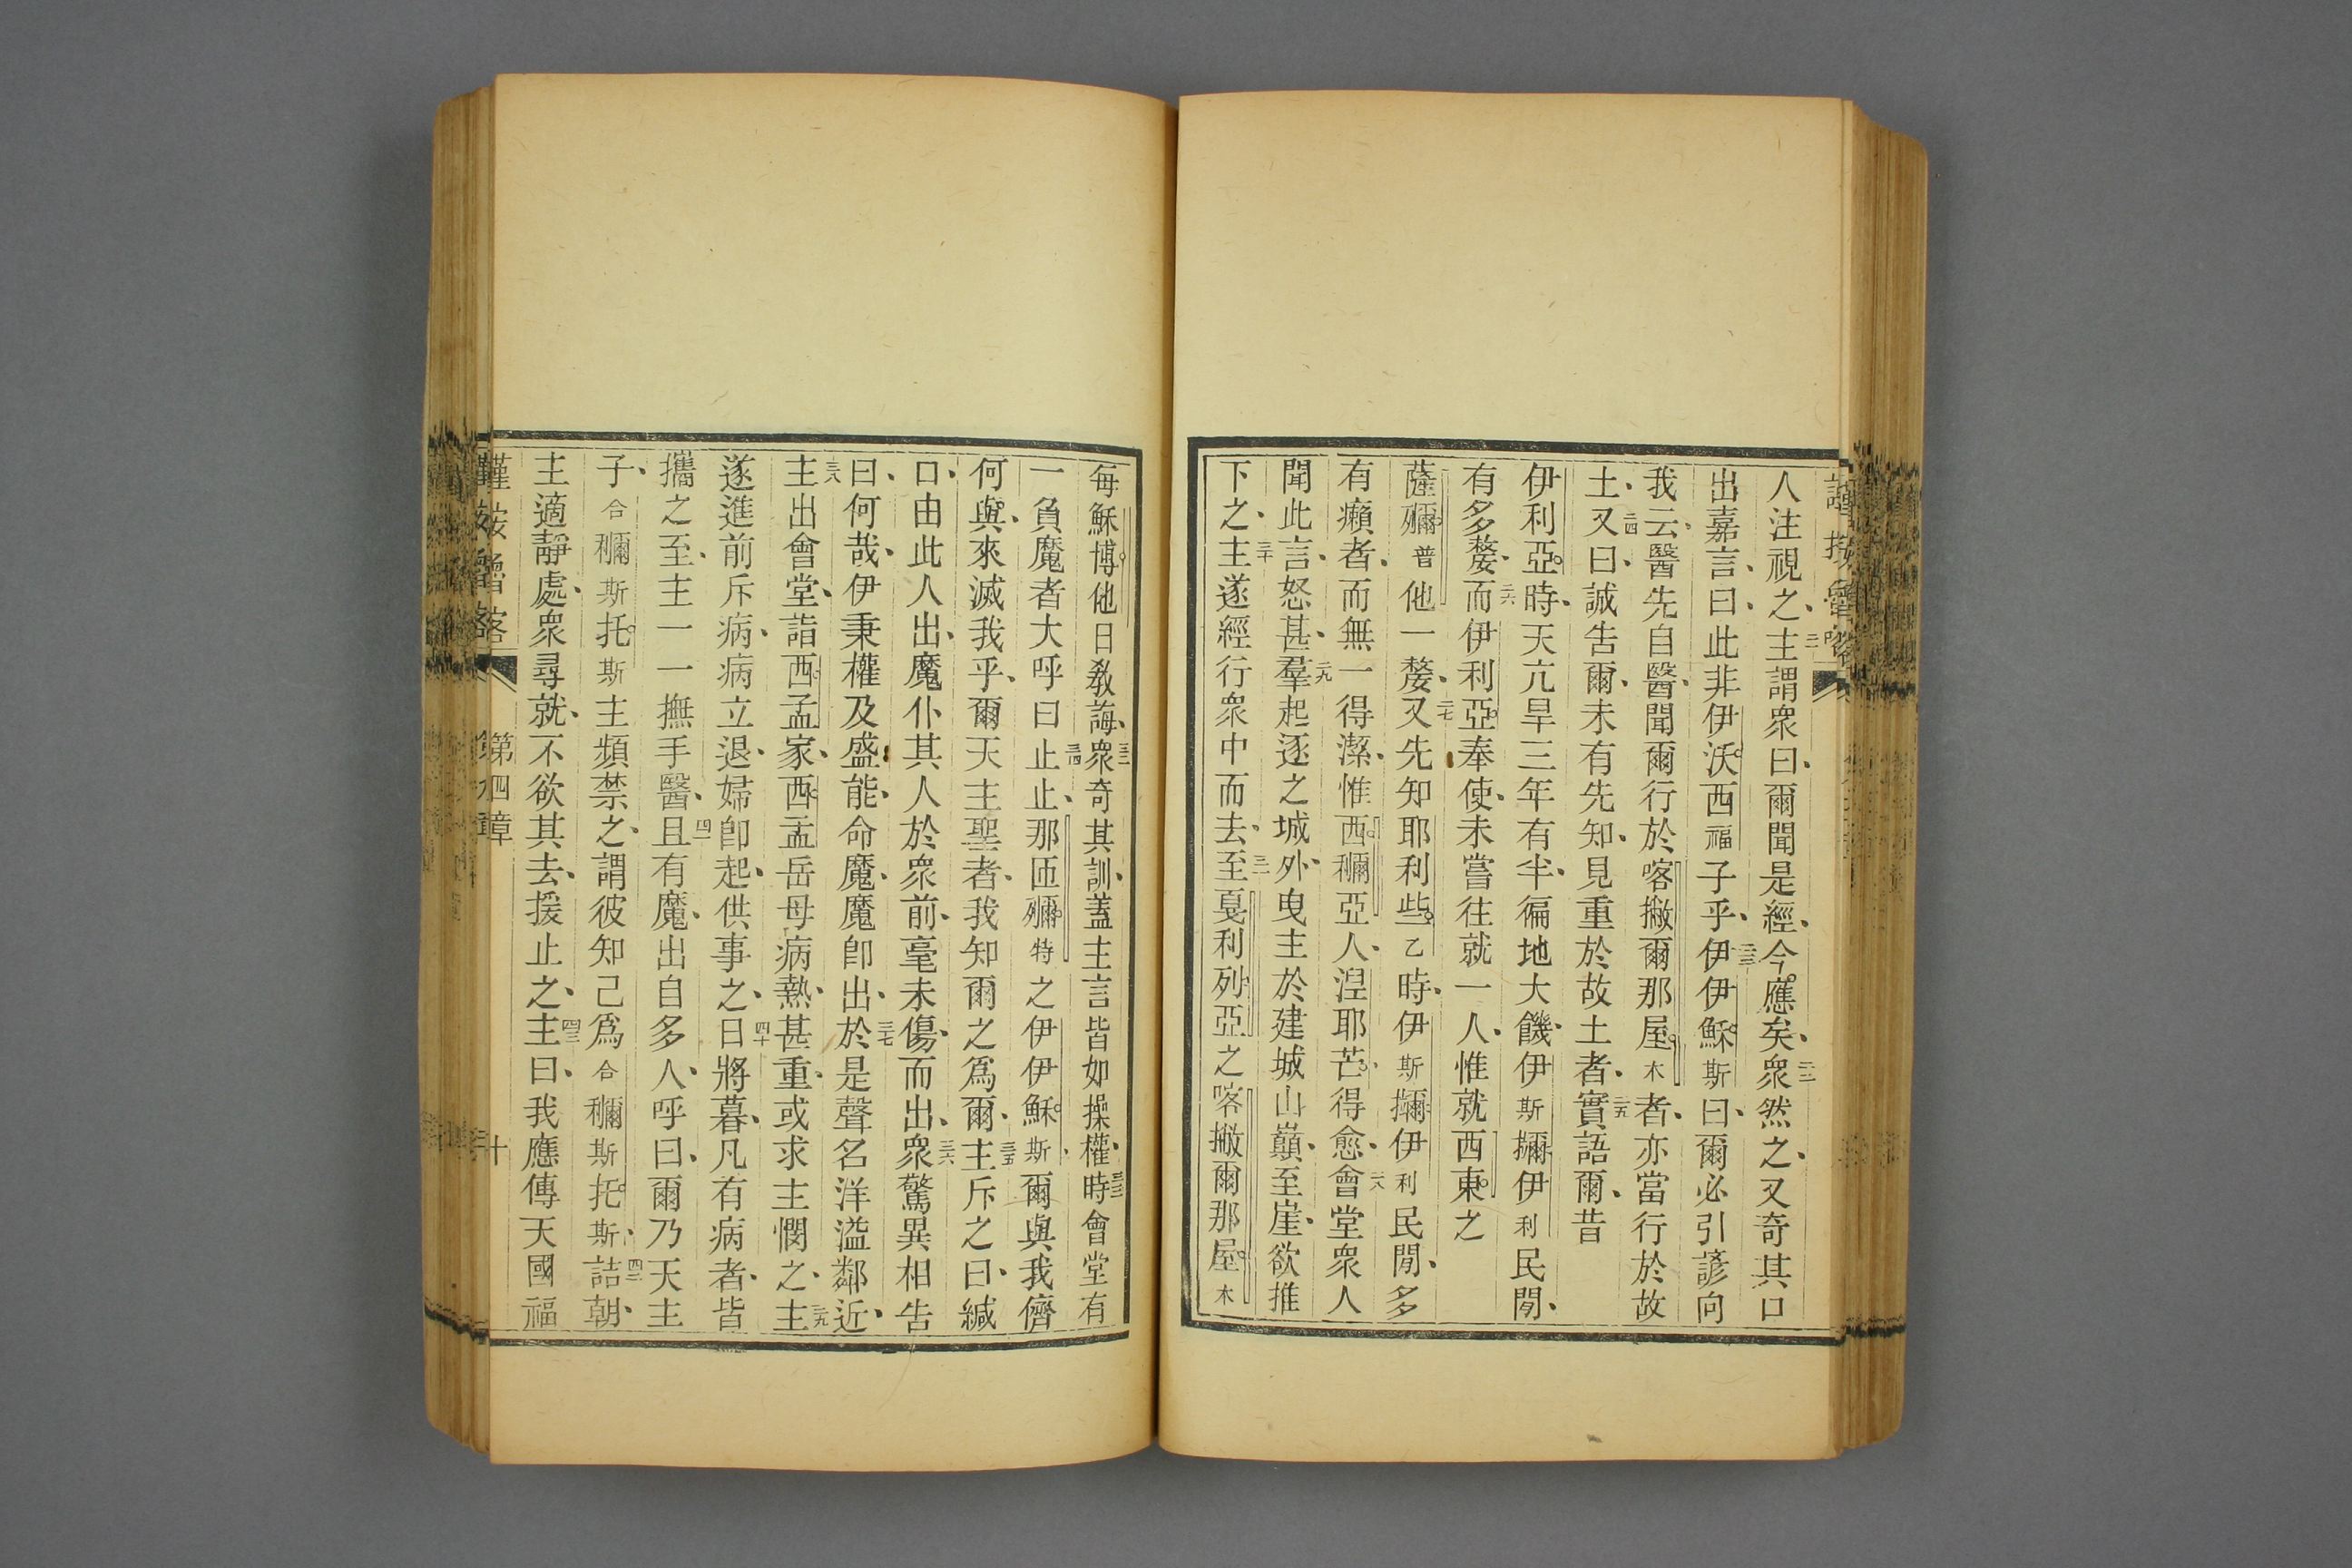 人注視之、二一主謂衆曰、爾聞是經、今應矣、二二衆然之、又奇其口
出嘉言、曰、此非伊沃西福子乎、二三伊伊穌斯曰、爾必引諺向
我云醫先自醫、聞爾行於喀撇爾那屋木者、亦當行於故
土、二四又曰、誠告爾、未有先知、見重於故土者、二五實語爾、昔
伊利亞時、天亢旱三年有半、徧地大饑、伊斯㺔伊利民閒、
有多嫠、二六而伊利亞奉使、未嘗往就一人、惟就西東之
薩㺔普他一嫠、二七又先知耶利些乙時、伊斯㺔伊利民閒、多
有癩者、而無一得潔、惟西㺔亞人、涅耶芒得愈、二八會堂衆人
聞此言、怒甚、二九羣起逐之城外、曳主於建城山巔、至崖、欲推
下之、三十主遂經行衆中而去、三一至戛利列亞之喀撇爾那屋木
每穌博他日教誨、三二衆奇其訓、蓋主言皆如操權、三三時會堂有
一負魔者大呼曰、三四止止、那匝㺔特之伊伊穌斯、爾與我儕
何與、來滅我乎、爾天主聖者、我知爾之爲爾、三五主斥之曰、緘
口、由此人出、魔仆其人於衆前、毫未傷、而出、三六衆驚異相告
曰、何哉、伊秉權及盛能、命魔、魔卽出、三七於是聲名洋溢鄰近、
三八主出會堂、詣西孟家、西孟岳母病熱甚重、或求主憫之、三九主
遂進前斥病、病立退、婦卽起、供事之、四十日將暮、凡有病者、皆
攜之至、主一一撫手醫、四一且有魔、出自多人、呼曰、爾乃天主
子、合㺔斯托斯主頻禁之、謂彼知己爲合㺔斯托斯、四二詰朝、
主適靜處、衆尋就、不欲其去、援止之、四三主曰、我應傳天國福
第四章
十